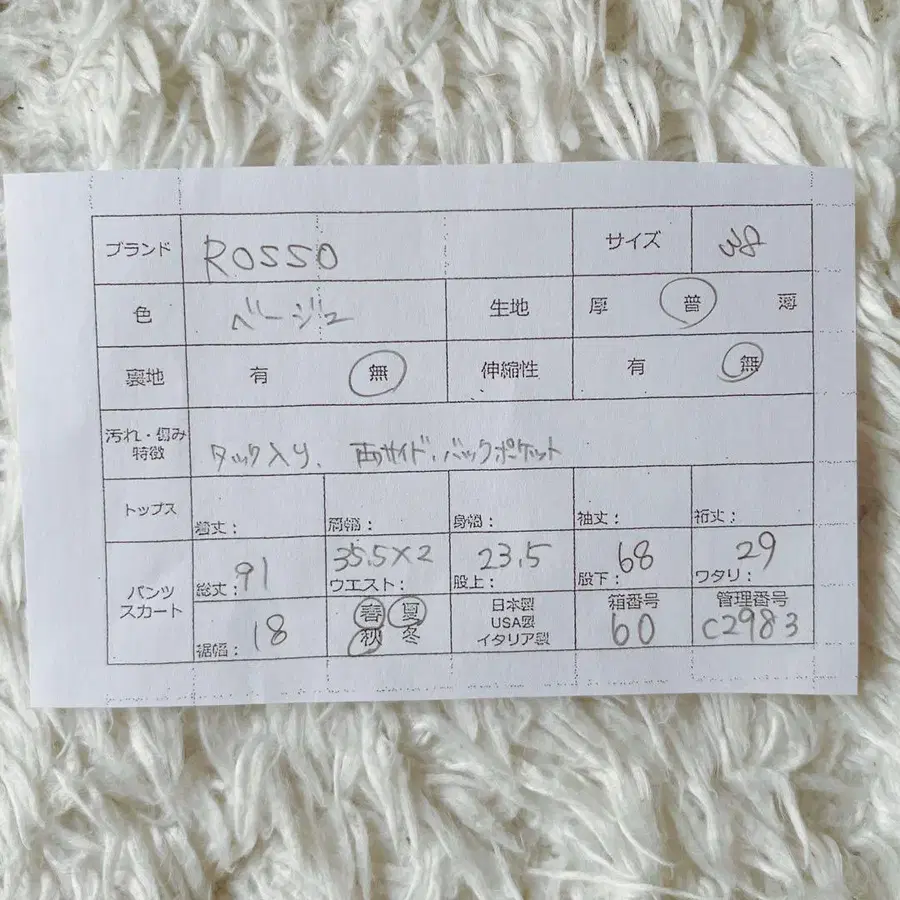 ブランド ROSSO サイズ 38
色 ベージュ 生地 厚 普 薄
裏地 有 無 伸縮性 有 無
汚れ・傷み
特徴
タック入り、両サイド、バックポケット
トップス 着丈： 肩幅： 身幅： 袖丈： 裄丈：
パンツ
スカート
総丈：91 ウエスト：35.5×2 股上：23.5 股下：68 ワタリ：29
裾幅：18
春 夏
秋 冬
日本製
USA製
イタリア製
箱番号
60
管理番号
C2983